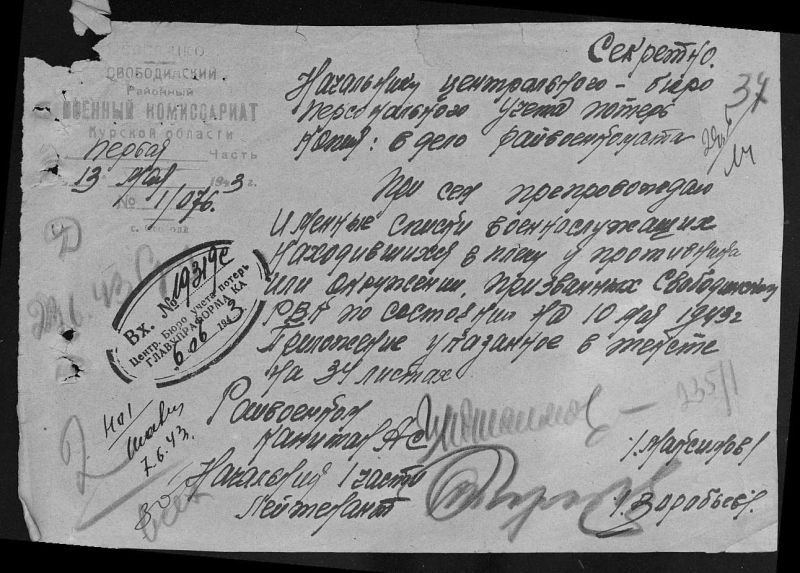 Секретно.
СВОБОДИНСКИЙ
Районный
ВОЕННЫЙ КОМИССАРИАТ
Курской области
Первая Часть
13 мая 1943 г.
№ 1/076.
Начальнику центрального - бюро
персонального учета потерь
копия: в дело райвоенкомата
34
При сем препровождаю
Именные списки военнослужащих
находившихся в плену у противника
или окружении, призванных Свободинским
РВК по состоянию на 10 мая 1943 г
Приложение указанное в тексте
на 34 листах
Вх. № 19319с
Центр. Бюро учета потерь
ГЛАВУПРАФОРМ КА
6 06 1943
235/1
7.6.43.
Райвоенком
капитан АС /Максимов/
Начальник 1 части
Лейтенант /Воробьев/.